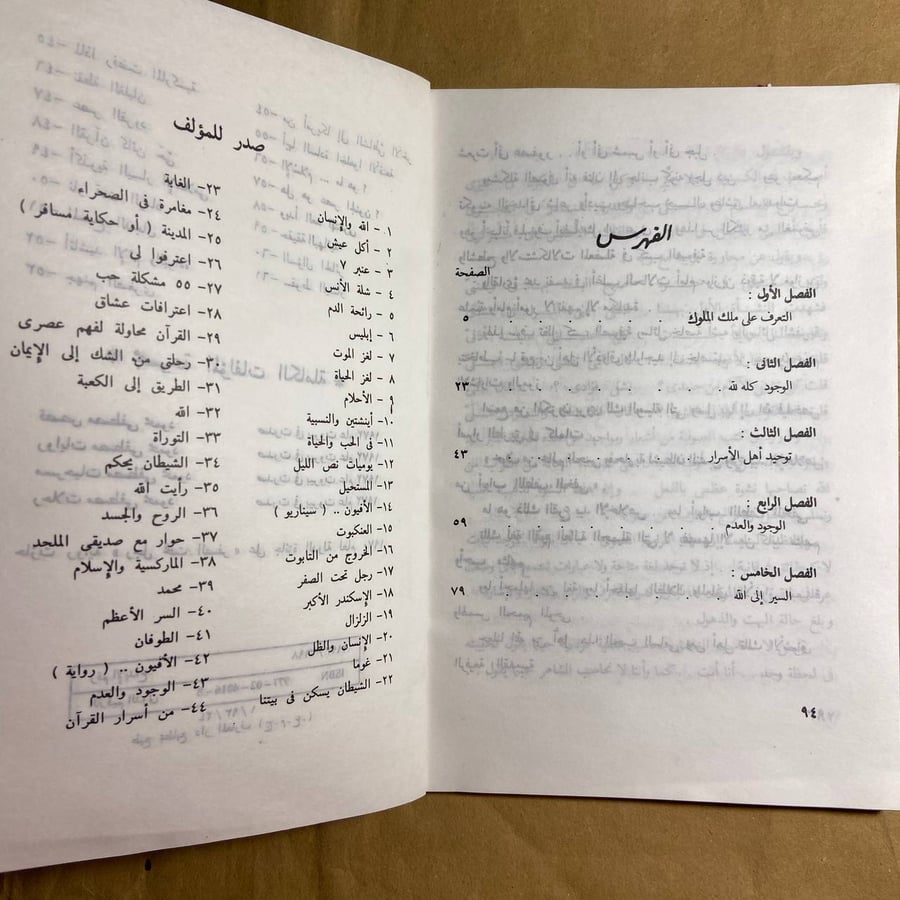 الفهرس
الصفحة
الفصل الأول :
التعرف على ملك الملوك . . . . ٥
الفصل الثانى :
الوجود كله لله . . . . . . ٢٣
الفصل الثالث :
توحيد أهل الأسرار . . . . . ٤٣
الفصل الرابع :
الوجود والعدم . . . . . . ٥٩
الفصل الخامس :
السير إلى الله . . . . . . ٧٩
٩٤
صدر للمؤلف
١ - الله والإنسان
٢ - أكل عيش
٣ - عنبر ٧
٤ - شلة الأنس
٥ - رائحة الدم
٦ - إبليس
٧ - لغز الموت
٨ - لغز الحياة
٩ - الأحلام
١٠- أينشتين والنسبية
١١- فى الحب والحياة
١٢- يوميات نص الليل
١٣- المستحيل
١٤- الأفيون .. ( سيناريو )
١٥- العنكبوت
١٦- الخروج من التابوت
١٧- رجل تحت الصفر
١٨- الإسكندر الأكبر
١٩- الزلزال
٢٠- الإنسان والظل
٢١- غوما
٢٢- الشيطان يسكن فى بيتنا
٢٣- الغابة
٢٤- مغامرة فى الصحراء
٢٥- المدينة ( أو حكاية مسافر )
٢٦- اعترفوا لى
٢٧- ٥٥ مشكلة حب
٢٨- اعترافات عشاق
٢٩- القرآن محاولة لفهم عصرى
٣٠- رحلتى من الشك إلى الإيمان
٣١- الطريق إلى الكعبة
٣٢- الله
٣٣- التوراة
٣٤- الشيطان يحكم
٣٥- رأيت الله
٣٦- الروح والجسد
٣٧- حوار مع صديقى الملحد
٣٨- الماركسية والإسلام
٣٩- محمد
٤٠- السر الأعظم
٤١- الطوفان
٤٢- الأفيون .. ( رواية )
٤٣- الوجود والعدم
٤٤- من أسرار القرآن